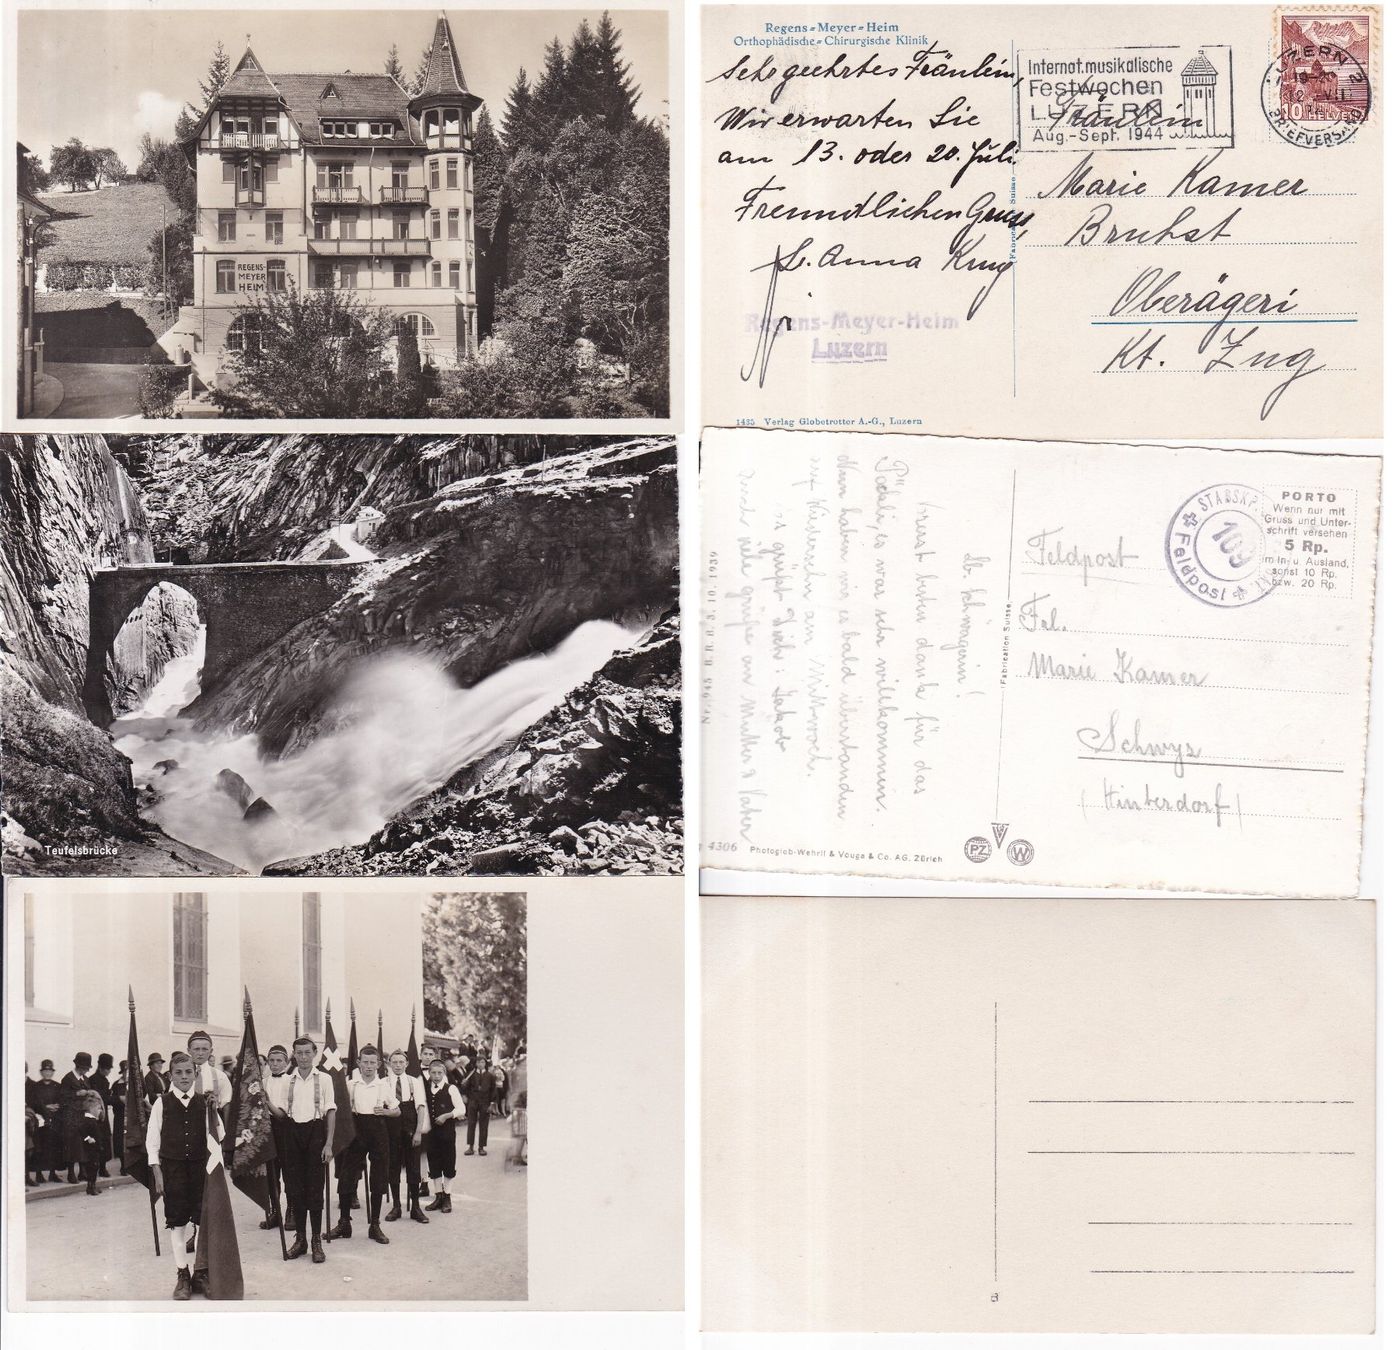 REGENS-
MEYER
HEIM
Regens-Meyer-Heim
Orthophädische-Chirurgische Klinik
Sehr geehrtes Fräulein,
Wir erwarten Sie
am 13. oder 20. Juli
Freundlichen Gruss,
S. Anna Krug
Regens-Meyer-Heim
Luzern
1435 Verlag Globetrotter A.-G., Luzern
Fabrication Suisse
Internat. musikalische
Festwochen
LUZERN
Aug.-Sept. 1944
LUZERN 2
BRIEFVERSAND
10 HELVETIA
Fräulein
Marie Kamer
Bruhst
Oberägeri
Kt. Zug
Teufelsbrücke
Lb. Schwägerin!
besten dank für das
Päckli, es war sehr willkommen.
Nun haben wir es bald überstanden
am Mittwoch.
es grüsst Dich: Jakob
noch viele grüsse an Mutter & Vater
Nr. 945 B.R.B. 3.10.1939
4306 Photoglob-Wehrli & Vouga & Co. AG. Zürich
PZ
W
Fabrication Suisse
STABSKP.
109
Feldpost
PORTO
Wenn nur mit
Gruss und Unter-
schrift versehen
5 Rp.
im In- u. Ausland,
sonst 10 Rp.
bzw. 20 Rp.
Feldpost
Frl.
Marie Kamer
Schwyz
(Hinterdorf)